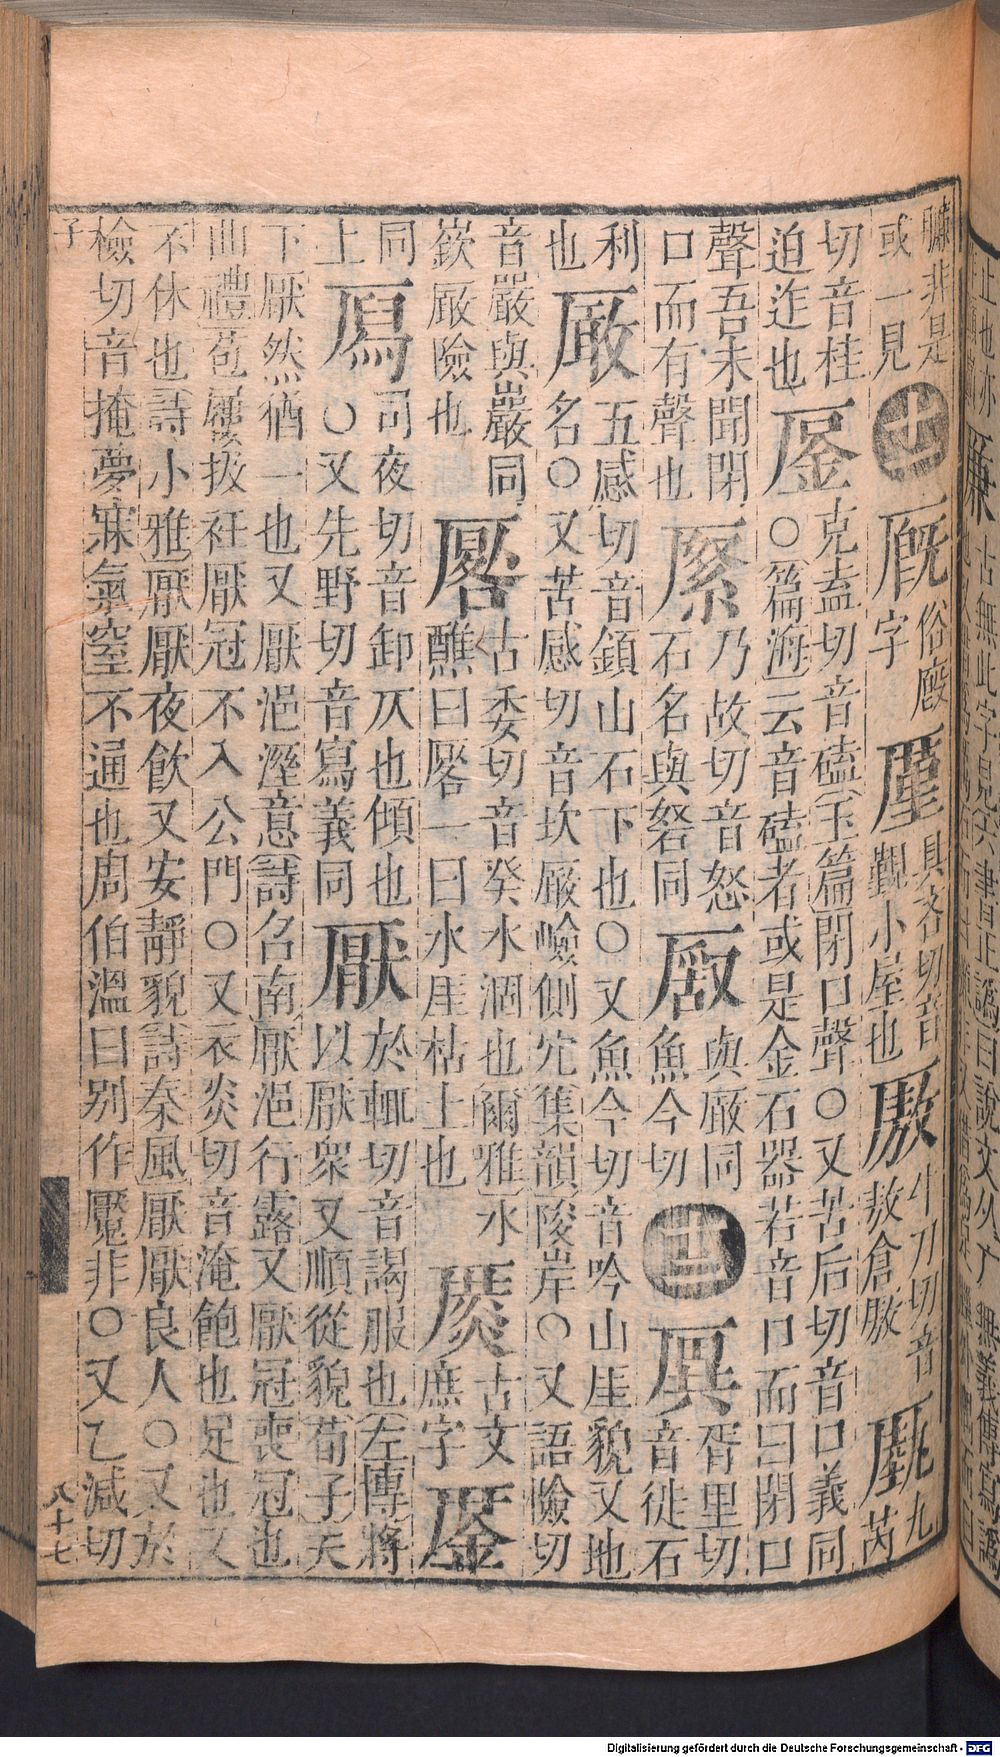 非是
或一見
十一
厩
俗廄
字
廑
具吝切音
覲小屋也
厫
牛刀切音
敖倉厫
九
芮
切音桂
迫迮也
克盍切音磕玉篇閉口聲○又苦后切音口義同
○篇海云音磕者或是金石器若音口而曰閉口
聲吾未聞閉
口而有聲也
乃故切音怒
石名與砮同
與厰同
魚今切
十二
胥里切
音徙石
利
也
厰
五感切音顉山石下也○又魚今切音吟山崖貌又地
名○又苦感切音坎厰嶮側穴集韻陵岸○又語險切
音嚴與巖同
嶔厰險也
厬
古委切音癸水涸也爾雅水
醮曰厬一曰水厓枯土也
古文
庶字
同
上
司夜切音卸仄也傾也
○又先野切音寫義同
厭
於輒切音謁服也左傳將
以厭衆又順從貌荀子天
下厭然猶一也又厭浥溼意詩召南厭浥行露又厭冠喪冠也
曲禮苞屨扱衽厭冠不入公門○又衣炎切音淹飽也足也又
不休也詩小雅厭厭夜飲又安靜貌詩秦風厭厭良人○又於
檢切音掩夢寐氣窒不通也周伯溫曰别作魘非○又乙減切
子
八十七
Digitalisierung gefördert durch die Deutsche Forschungsgemeinschaft - DFG